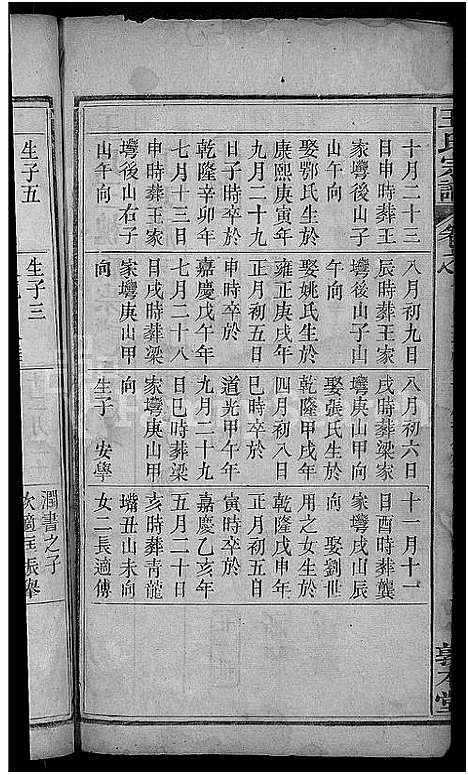 王氏宗譜
敦本堂
十月二十三
日申時葬王
家塆後山子
山午向
娶鄂氏生於
康熙庚寅年
九月二十九
日子時卒於
乾隆辛卯年
七月十三日
申時葬王家
塆後山右子
山午向
八月初九日
辰時葬王家
塆後山子山
午向
娶姚氏生於
雍正庚戌年
正月初五日
申時卒於
嘉慶戊午年
七月二十八
日戌時葬梁
家塆庚山甲
向
八月初六日
戌時葬梁家
塆庚山甲向
娶張氏生於
乾隆甲戌年
四月初八日
巳時卒於
道光甲午年
九月二十九
日巳時葬梁
家塆庚山甲
向
生子 安學
十一月十一
日酉時葬龔
家塆戌山辰
向 娶劉世
用之女生於
乾隆戊申年
正月初五日
寅時卒於
嘉慶乙亥年
五月二日
亥時葬青龍
嘴丑山未向
女二長適傅
生子五
生子三
潤書之子
次適汪振舉